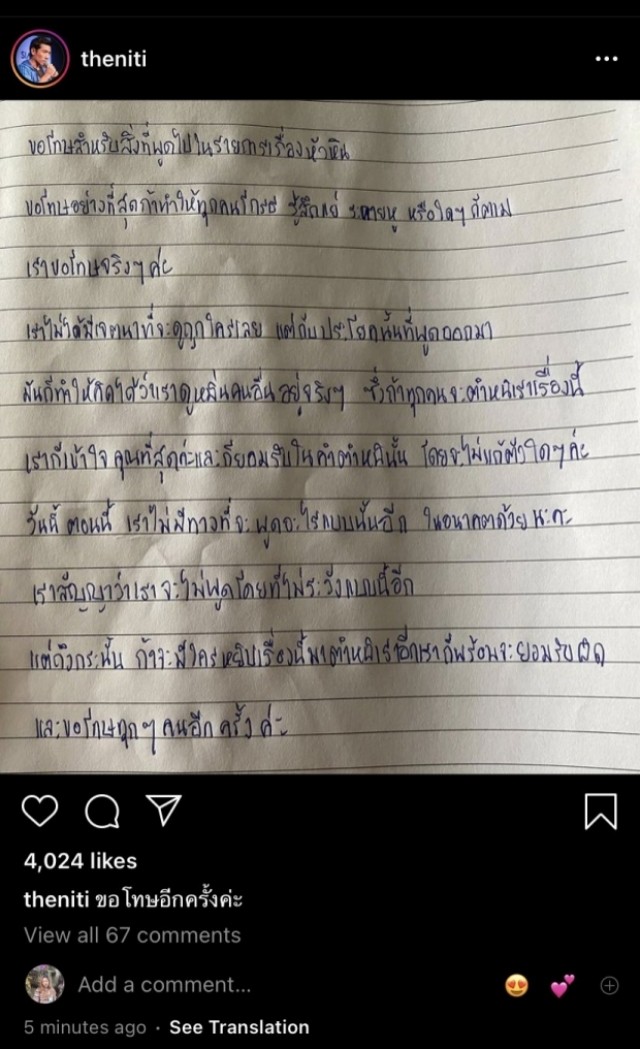 theniti
ขอโทษสำหรับสิ่งที่พูดไปในรายการเรื่องหัวหิน
ขอโทษอย่างที่สุดถ้าทำให้ทุกคนโกรธ รู้สึกแย่ ระคายหู หรือใดๆก็ตาม
เราขอโทษจริงๆค่ะ
เราไม่ได้มีเจตนาที่จะดูถูกใครเลย แต่กับประโยคนั้นที่พูดออกมา
มันก็ทำให้คิดได้ว่าเราดูหมิ่นคนอื่นอยู่จริงๆ ซึ่งถ้าทุกคนจะตำหนิเราเรื่องนี้
เราก็เข้าใจ คุณที่สุดค่ะและก็ยอมรับในคำตำหนินั้น โดยจะไม่แก้ตัวใดๆค่ะ
วันนี้ ตอนนี้ เราไม่มีทางที่จะ พูดอะไรแบบนั้นอีก ในอนาคตด้วย นะคะ
เราสัญญาว่าเราจะไม่พูดโดยที่ไม่ระวังแบบนี้อีก
แต่ถึงกระนั้น ถ้าจะมีใครหยิบเรื่องนี้มาตำหนิเราอีกเราก็พร้อมจะยอมรับผิด
และขอโทษทุกๆคนอีกครั้งค่ะ
4,024 likes
theniti ขอโทษอีกครั้งค่ะ
View all 67 comments
Add a comment...
5 minutes ago · See Translation